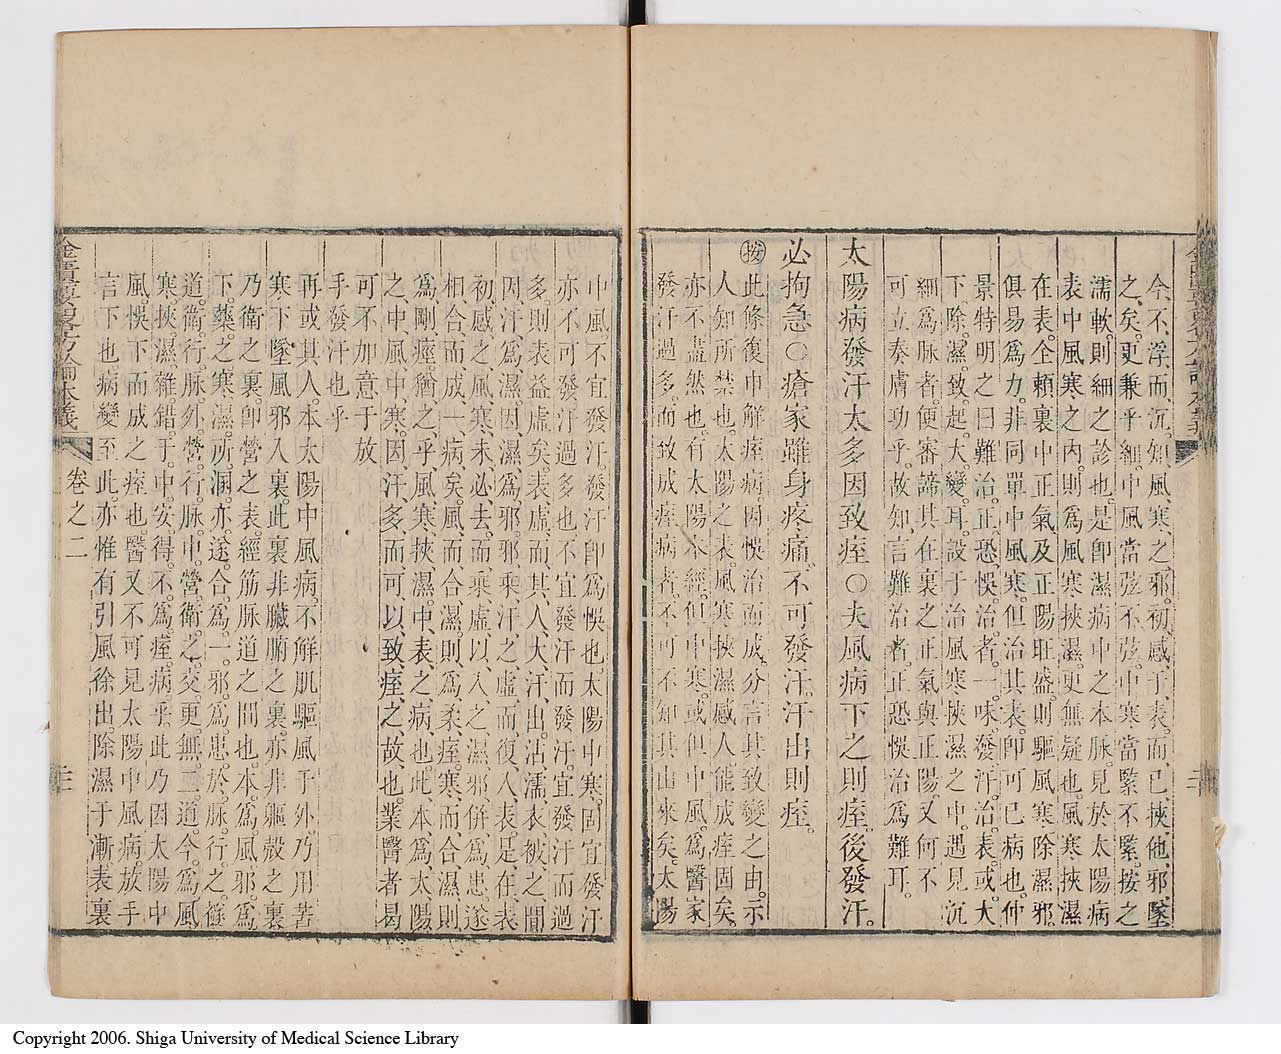 今不浮而沉。知風寒之邪。初感于表。而已挾他邪墜
之矣。更兼乎細。中風當弦不弦。中寒當緊不緊。按之
濡軟。則細之診也。是即濕病中之本脉。見於太陽病
表中風寒之內。則爲風寒挾濕。更無疑也。風寒挾濕
在表。全賴裏中正氣。及正陽旺盛。則驅風寒除濕邪。
俱易爲力。非同單中風寒。但治其表。即可已病也。仲
景特明之曰難治。正恐悞治者。一味發汗治表。或大
下除濕。致起大變耳。設于治風寒挾濕之中。遇見沉
細爲脉者。便審諦其在裏之正氣與正陽。又何不
可立奏膚功乎。故知言難治者。正恐悞治爲難耳。
太陽病發汗太多因致痓○夫風病下之則痓。後發汗。
必拘急○瘡家雖身疼痛。不可發汗。汗出則痓。
按此條復申解痓病。因悞治而成。分言其致變之由。示
人知所禁也。太陽之表。風寒挾濕感人。能成痓固矣。
亦不盡然也。有太陽本經。但中寒。或但中風。爲醫家
發汗過多。而致成痓病者。不可不知其由來矣。太陽
中風不宜發汗。發汗即爲悞也。太陽中寒。固宜發汗
亦不可發汗過多也。不宜發汗而發汗。宜發汗而過
多。則表益虛矣。表虛而其人大汗出。沾濡衣被之間
因汗爲濕。因濕爲邪。邪乘汗之虛而復入表。是在表
初感之風寒未必去。而乘虛以入之濕邪併爲患。遂
相合而成一病矣。風而合濕。則爲柔痓。寒而合濕。則
爲剛痓。猶之乎風寒挾濕中表之病也。此本爲太陽
之中風中寒。因汗多而可以致痓之故也。業醫者曷
可不加意于放
手發汗也乎
再或其人本太陽中風病。不解肌驅風于外。乃用苦
寒下墜風邪入裏。此裏非臟腑之裏。亦非軀殼之裏
乃衛之裏。即營之表。經筋脉道之間也。本爲風邪。爲
下藥之寒濕所溷。亦遂合爲一邪。爲患於脉行之隧
道。衛行脉外。營行脉中。營衛之交。更無二道。今爲風
寒挾濕雜錯于中。安得不爲痓病乎。此乃因太陽中
風。悞下而成之痓也。醫又不可見太陽中風病放手
言下也。病變至此。亦惟有引風徐出。除濕于漸。表裏
卷之二